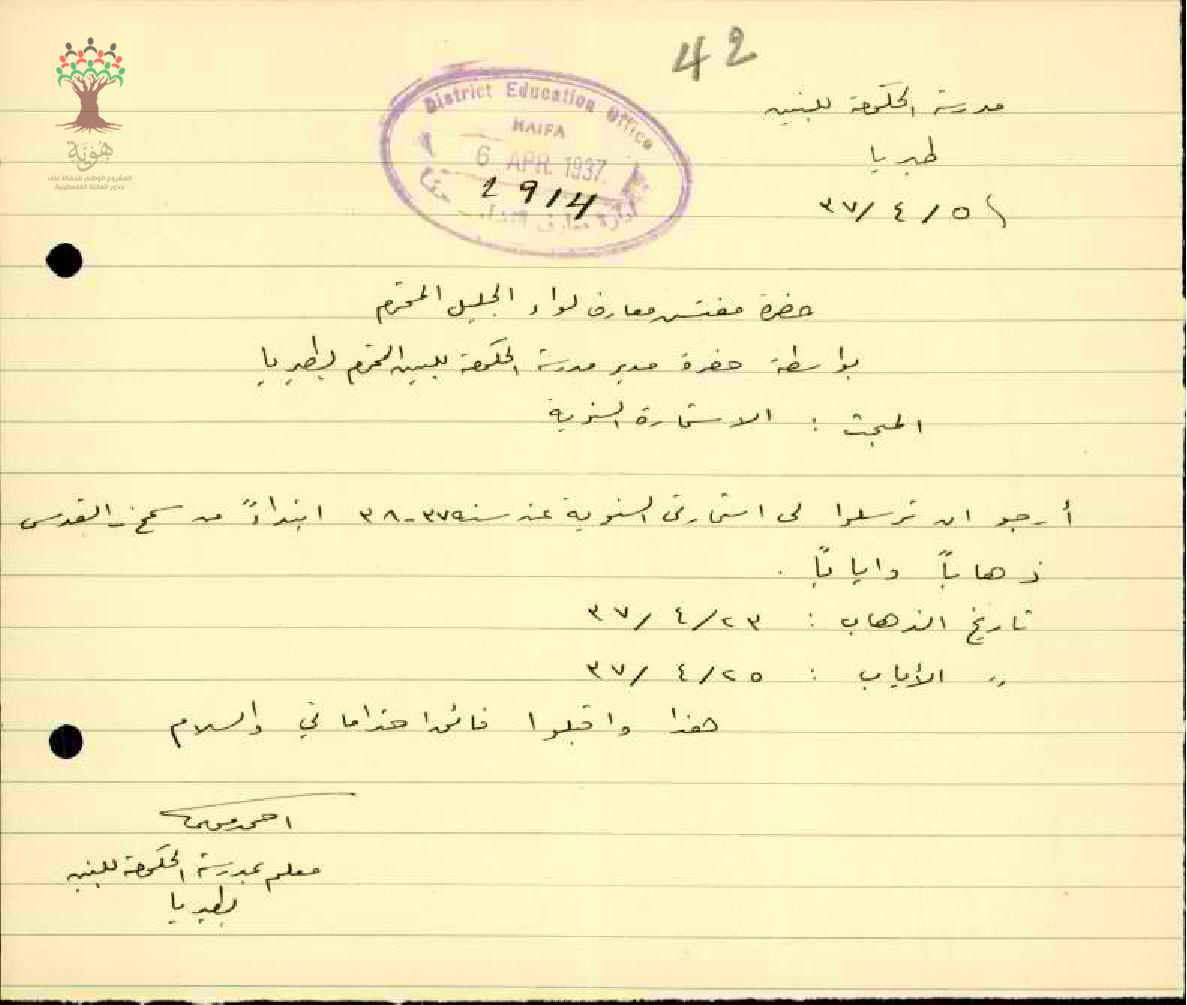 42
هوية
المشروع الوطني للحفاظ على
جذور العائلة الفلسطينية
District Education Office
HAIFA
6 APR. 1937.
2914
ادارة معارف اللواء حيفا
مدرسة الحكومة للبنين
طبريا
٥/٤/٣٧
حضرة مفتش معارف لواء الجليل المحترم
بواسطة حضرة مدير مدرسة الحكومة للبنين المحترم بطبريا
المبحث : الاستمارة السنوية
أرجو ان ترسلوا لي استمارتي السنوية عن سنة ٣٧-٣٨ ابتداءً من سمخ - القدس
ذهاباً واياباً .
تاريخ الذهاب : ٢٣/٤/٣٧
〃 الأياب : ٢٥/٤/٣٧
هذا واقبلوا فائق احتراماتي والسلام
احمد
معلم بمدرسة الحكومة للبنين
بطبريا